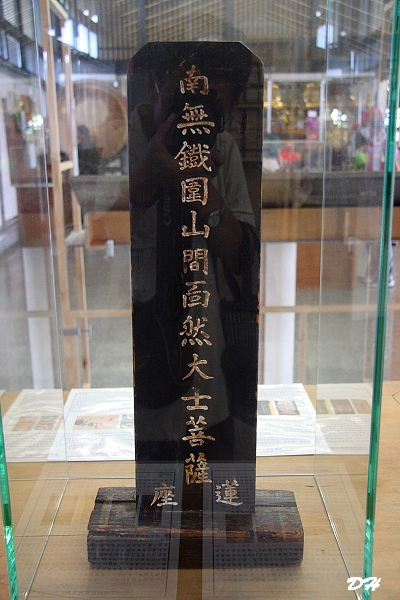 南無鐵圍山間面然大士菩薩
蓮座
DH